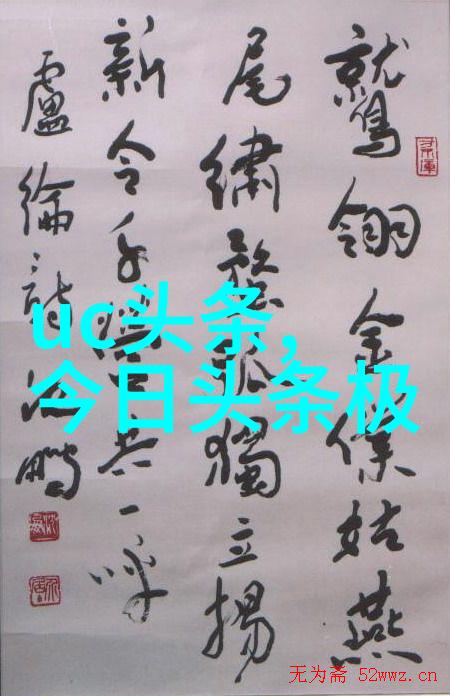 鷲翎金僕姑燕
尾繡蝥弧獨立揚
新令千營共一呼
盧綸詩沈鵬
uc头条,
今日头条极
无为斋 52wwz.cn